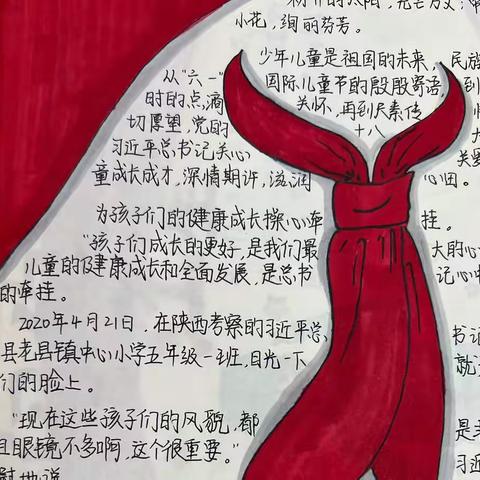 小花，绚丽芬芳。
少年儿童是祖国的未来，民族
从“六一”国际儿童节的殷殷寄语，到
时的点滴关怀，再到尺素传
切厚望，党的十八
习近平总书记关心关爱
童成长成才，深情期许，滋润心田。
为孩子们的健康成长操心牵挂。
“孩子们成长的更好，是我们最大的心
儿童的健康成长和全面发展，是总书记心中
的牵挂。
2020年4月21日，在陕西考察的习近平总书记
县老县镇中心小学五年级一班，目光一下就
们的脸上。
“现在这些孩子们的风貌，都是
且眼镜不多啊，这个很重要。”习近
慰地说